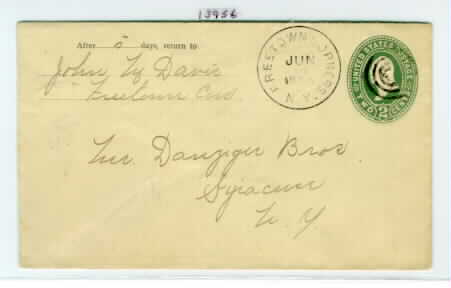 13956
After 5 days, return to
John W Davis
Freetown Cors
FREETOWN CORNERS N.Y.
JUN
UNITED STATES POSTAGE
TWO 2 CENTS
Mr. Danziger Bros
Syracuse
N Y